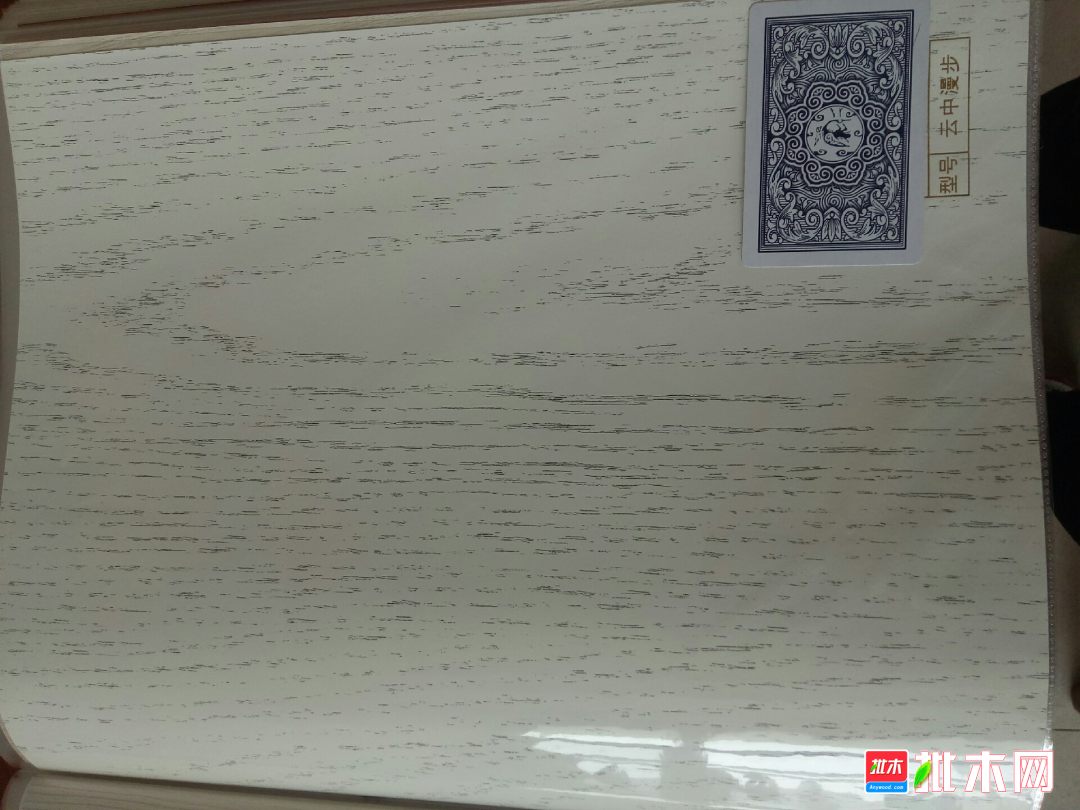 型号 去中漫步
批木
Anywood.com
批木网